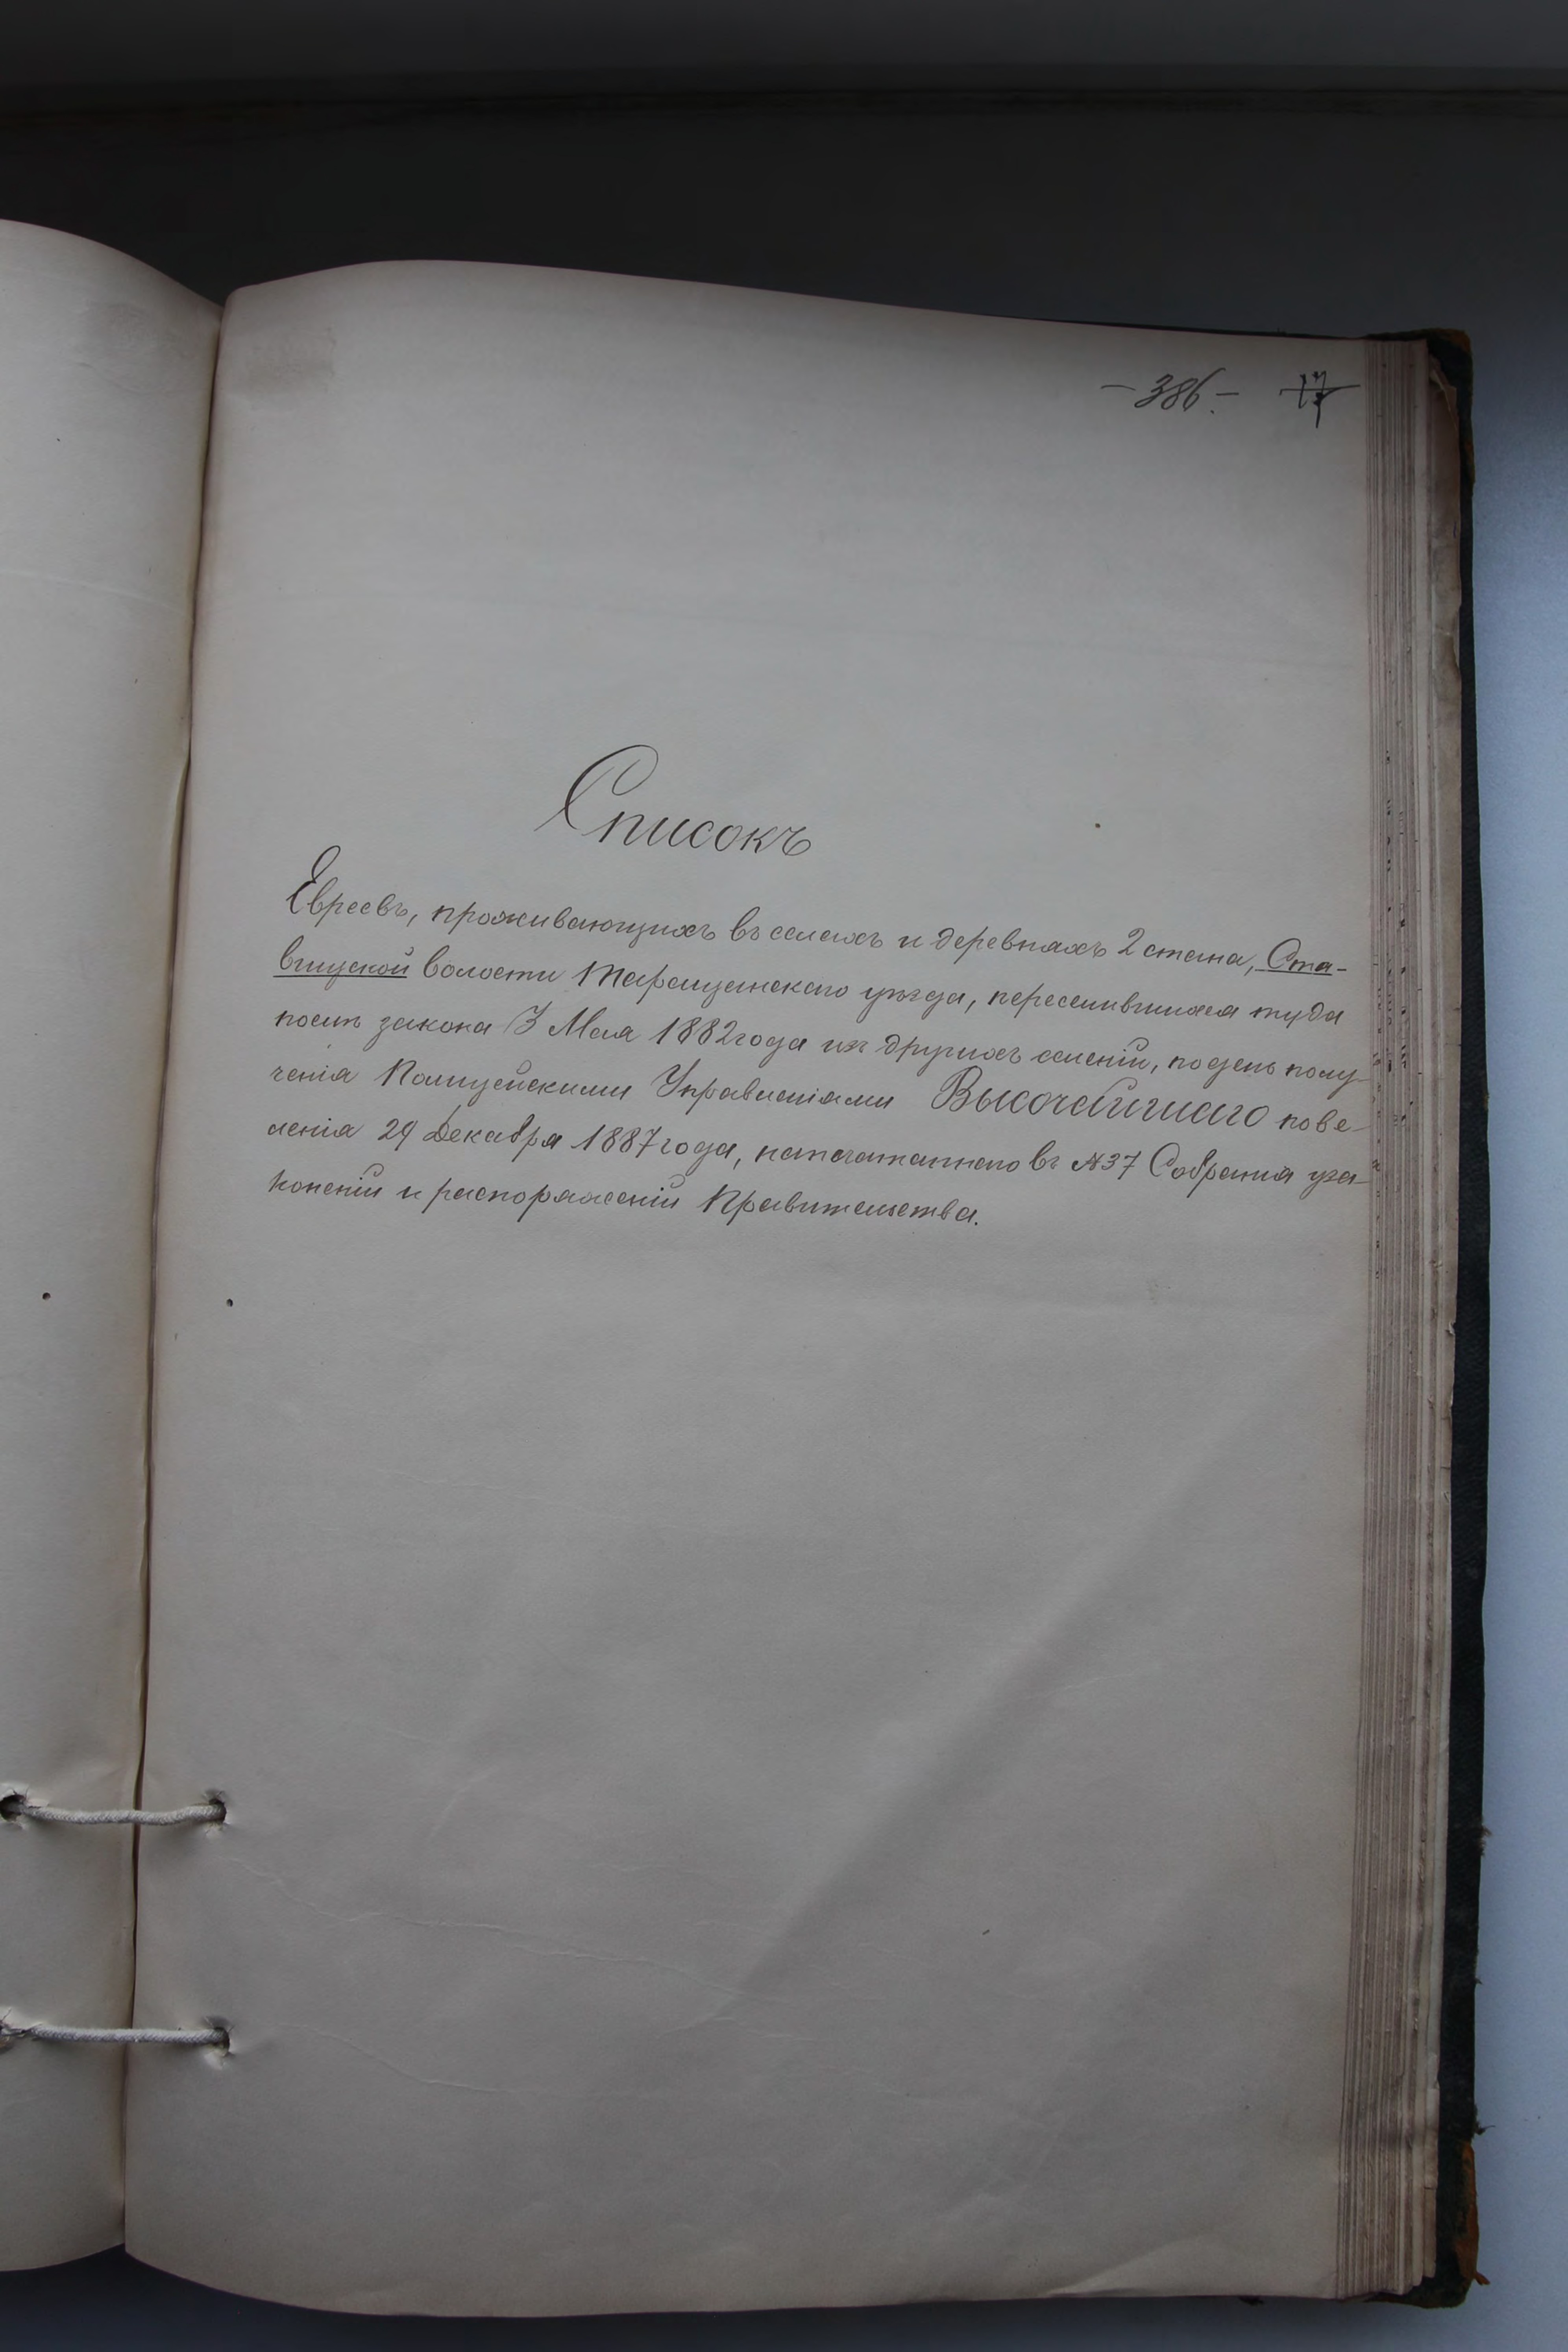 — 386. — 17
Списокъ
Евреевъ, проживающихъ въ селахъ и деревняхъ 2 стана, Ста-
вищской волости Таращанскаго уѣзда, переселившихся туда
послѣ закона 3 Мая 1882 года изъ другихъ селеній, по день полу-
ченія Полицейскими Управленіями Высочайшаго пове-
ленія 29 Декабря 1887 года, напечатаннаго въ №37 Собранія уза-
коненій и распоряженій Правительства.